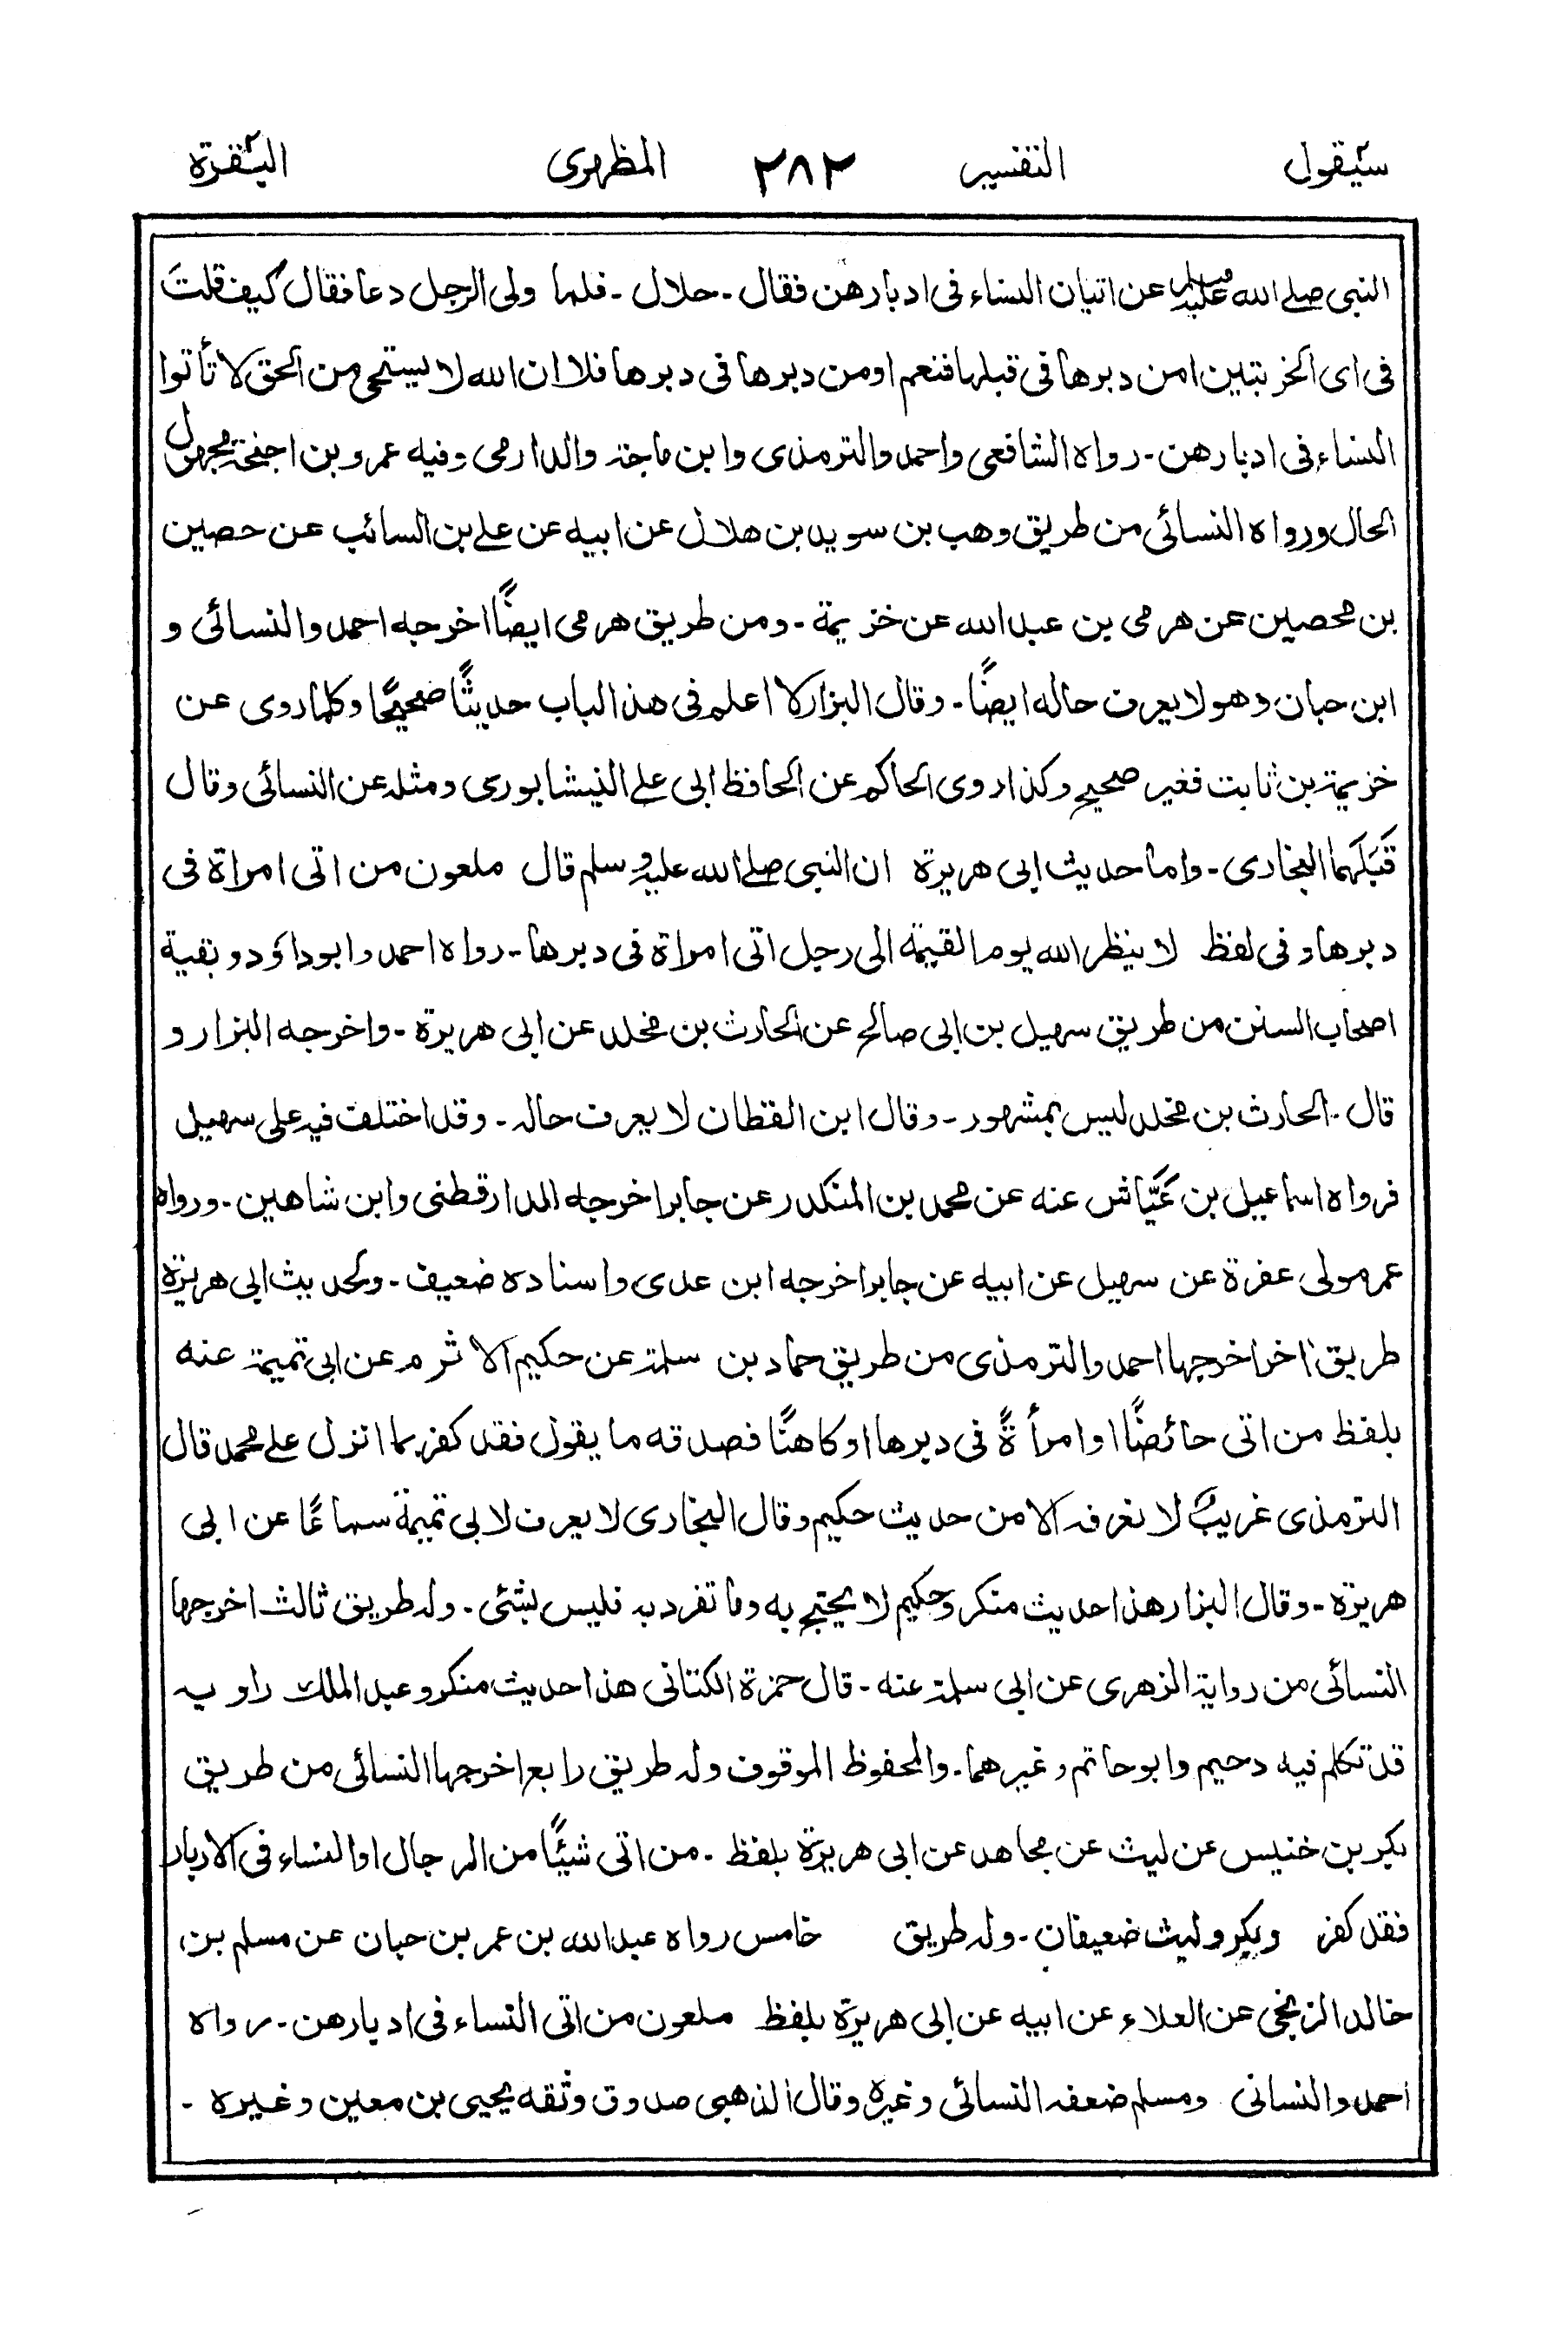 سيقول ٢ التفسير ٢٨٢ المظهرى البقرة ٢
النبى صلے الله عليه وسلم عن اتيان النساء فى ادبارهن فقال ـ حلال ـ فلما ولى الرجل دعا فقال كيف قلتَ
فى اى الخربتين امن دبرها فى قبلها فنعم او من دبرها فى دبرها فلا ان الله لا يستحى من الحق لا تأتوا
النساء فى ادبارهن ـ رواه الشافعى واحمد والترمذى وابن ماجة والدارمى وفيه عمرو بن اجنحة مجهول
الحال ورواه النسائى من طريق وهب بن سويد بن هلال عن ابيه عن على بن السائب عن حصين
بن محصين عن هرمى بن عبد الله عن خزيمة ـ ومن طريق هرمى ايضًا اخرجه احمد والنسائى و
ابن حبان وهو لا يعرف حاله ايضًا ـ وقال البزار لا اعلم فى هذ الباب حديثًا صحيحًا وكلما روى عن
خزيمة بن ثابت فغير صحيح وكذا روى الحاكم عن الحافظ ابى على النيشابورى ومثله عن النسائى وقال
قَبْلَهما البخارى ـ واما حديث ابى هريرة ان النبى صلے الله عليه وسلم قال ملعون من اتى امراة فى
دبرها وفى لفظ لا ينظر الله يوم القيمة الى رجل اتى امراة فى دبرها ـ رواه احمد وابوداؤد وبقية
اصحاب السنن من طريق سهيل بن ابى صالح عن الحارث بن مخلد عن ابى هريرة ـ واخرجه البزار و
قال الحارث بن مخلد ليس بمشهور ـ وقال ابن القطان لا يعرف حاله ـ وقد اختلف فيه على سهيل
فرواه اسماعيل بن عَيّاش عنه عن محمد بن المنكدر عن جابر اخرجه الدارقطنى وابن شاهين ـ ورواه
عمر مولى عفرة عن سهيل عن ابيه عن جابر اخرجه ابن عدى واسناده ضعيف ـ ولحديث ابى هريرة
طريق اخر اخرجها احمد والترمذى من طريق حماد بن سلمة عن حكيم الاثرم عن ابى تميمة عنه
بلفظ من اتى حائضًا او امرأةً فى دبرها او كاهنًا فصدقه ما يقول فقد كفر بما انزل على محمد قال
الترمذى غريبٌ لا نعرفه الا من حديث حكيم وقال البخارى لا يعرف لابى تميمة سماعًا عن ابى
هريرة ـ وقال البزار هذا حديث منكر وحكيم لا يحتج به وما تفرد به فليس بشئى ـ وله طريق ثالث اخرجها
النسائى من رواية الزهرى عن ابى سلمة عنه ـ قال حمزة الكنانى هذا حديث منكر وعبد الملك راويه
قد تكلم فيه دحيم وابو حاتم وغيرهما ـ والمحفوظ الموقوف وله طريق رابع اخرجها النسائى من طريق
بكير بن خنيس عن ليث عن مجاهد عن ابى هريرة بلفظ ـ من اتى شيئًا من الرجال او النساء فى الادبار
فقد كفر وبكر وليث ضعيفان ـ وله طريق خامس رواه عبد الله بن عمر بن حبان عن مسلم بن
خالد الزنجى عن العلاء عن ابيه عن ابى هريرة بلفظ ملعون من اتى النساء فى ادبارهن ـ رواه
احمد والنسائى ومسلم ضعفه النسائى وغيره وقال الذهبى صدوق وثقه يحيى بن معين وغيره ـ